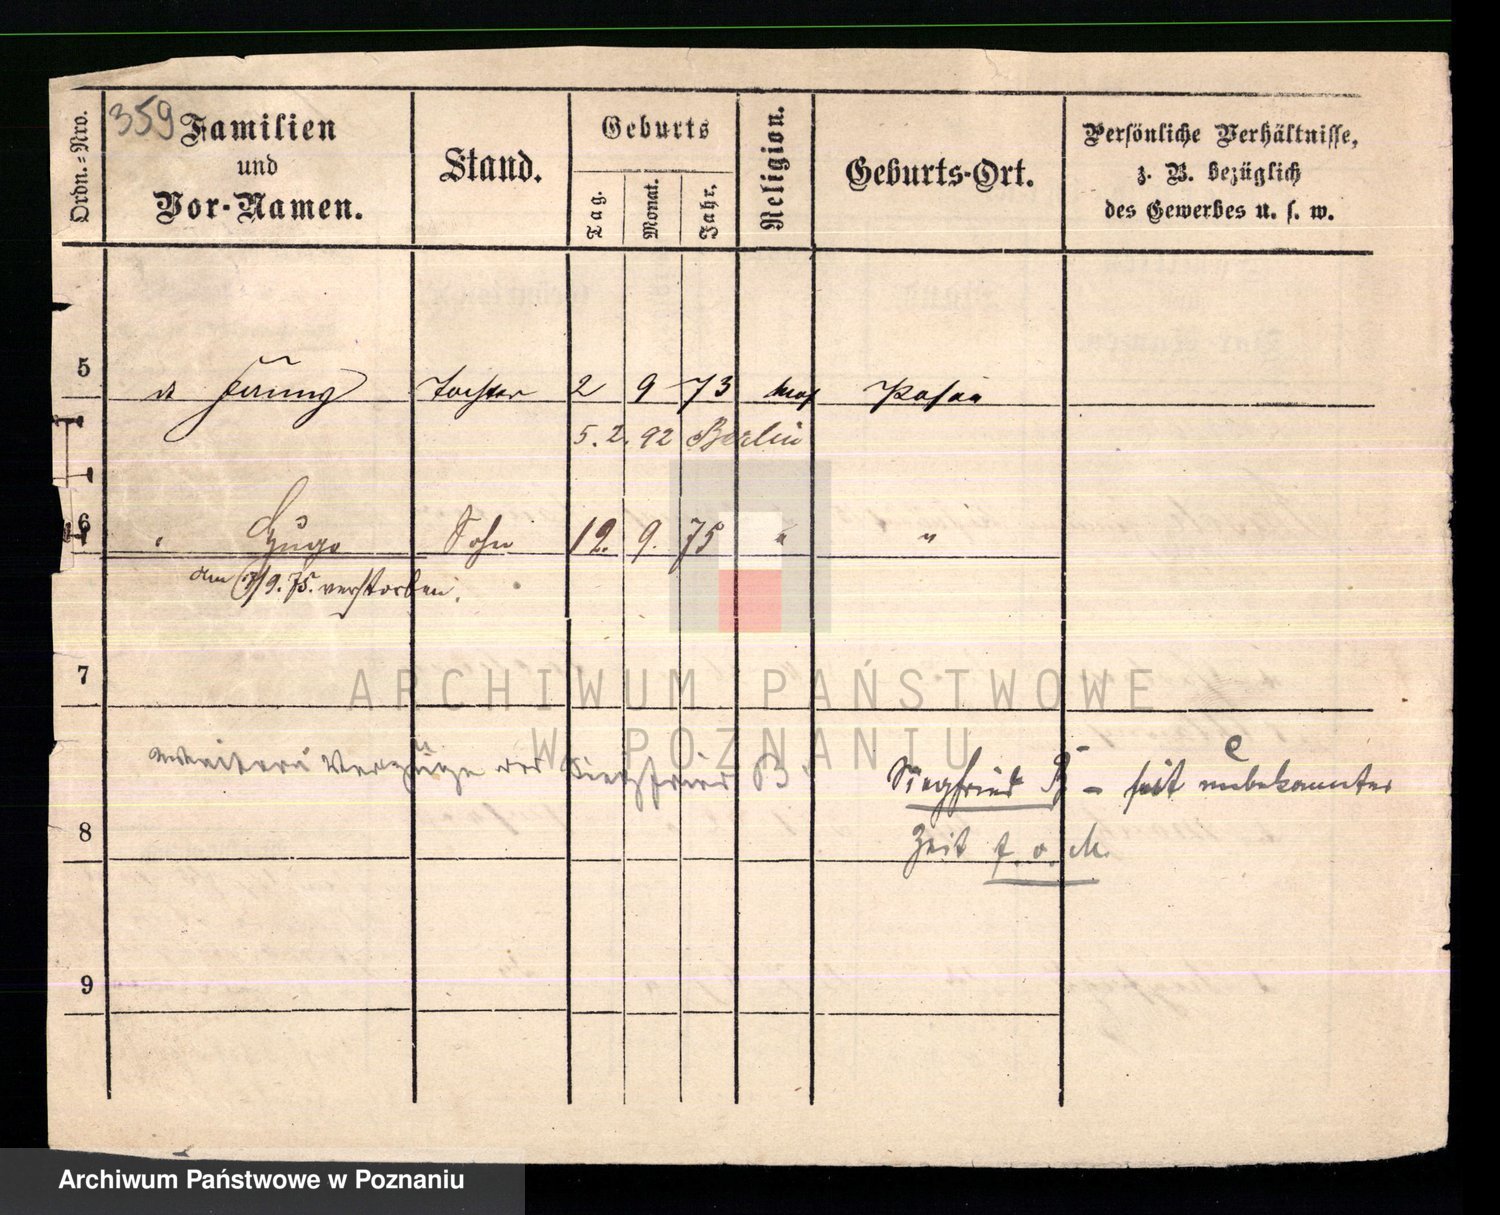 359
Ordn.-Nro.
Familien
und
Vor-Namen.
Stand.
Geburts
Tag.
Monat.
Jahr.
Religion.
Geburts-Ort.
Persönliche Verhältnisse,
z. B. bezüglich
des Gewerbes u. s. w.
5 Tochter 2 9 73 mos Posen
5. 2. 92 Berlin
6 " Hugo Sohn 12. 9. 75 " "
am 9. 75. verstorben.
7
Siegfried B - seit unbekannter
Zeit f. o. M.
8
9
ARCHIWUM PAŃSTWOWE
W POZNANIU
Archiwum Państwowe w Poznaniu